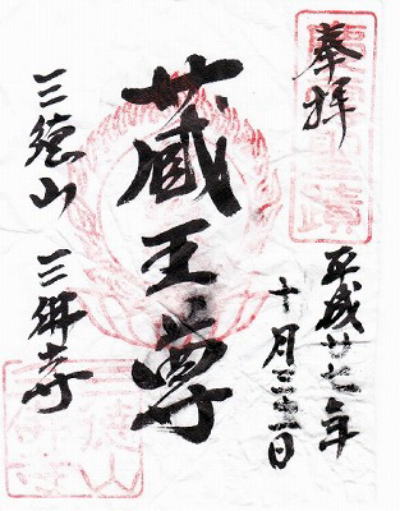 奉拝
平成廿七年
十月三十一日
蔵王尊
三徳山 三佛寺